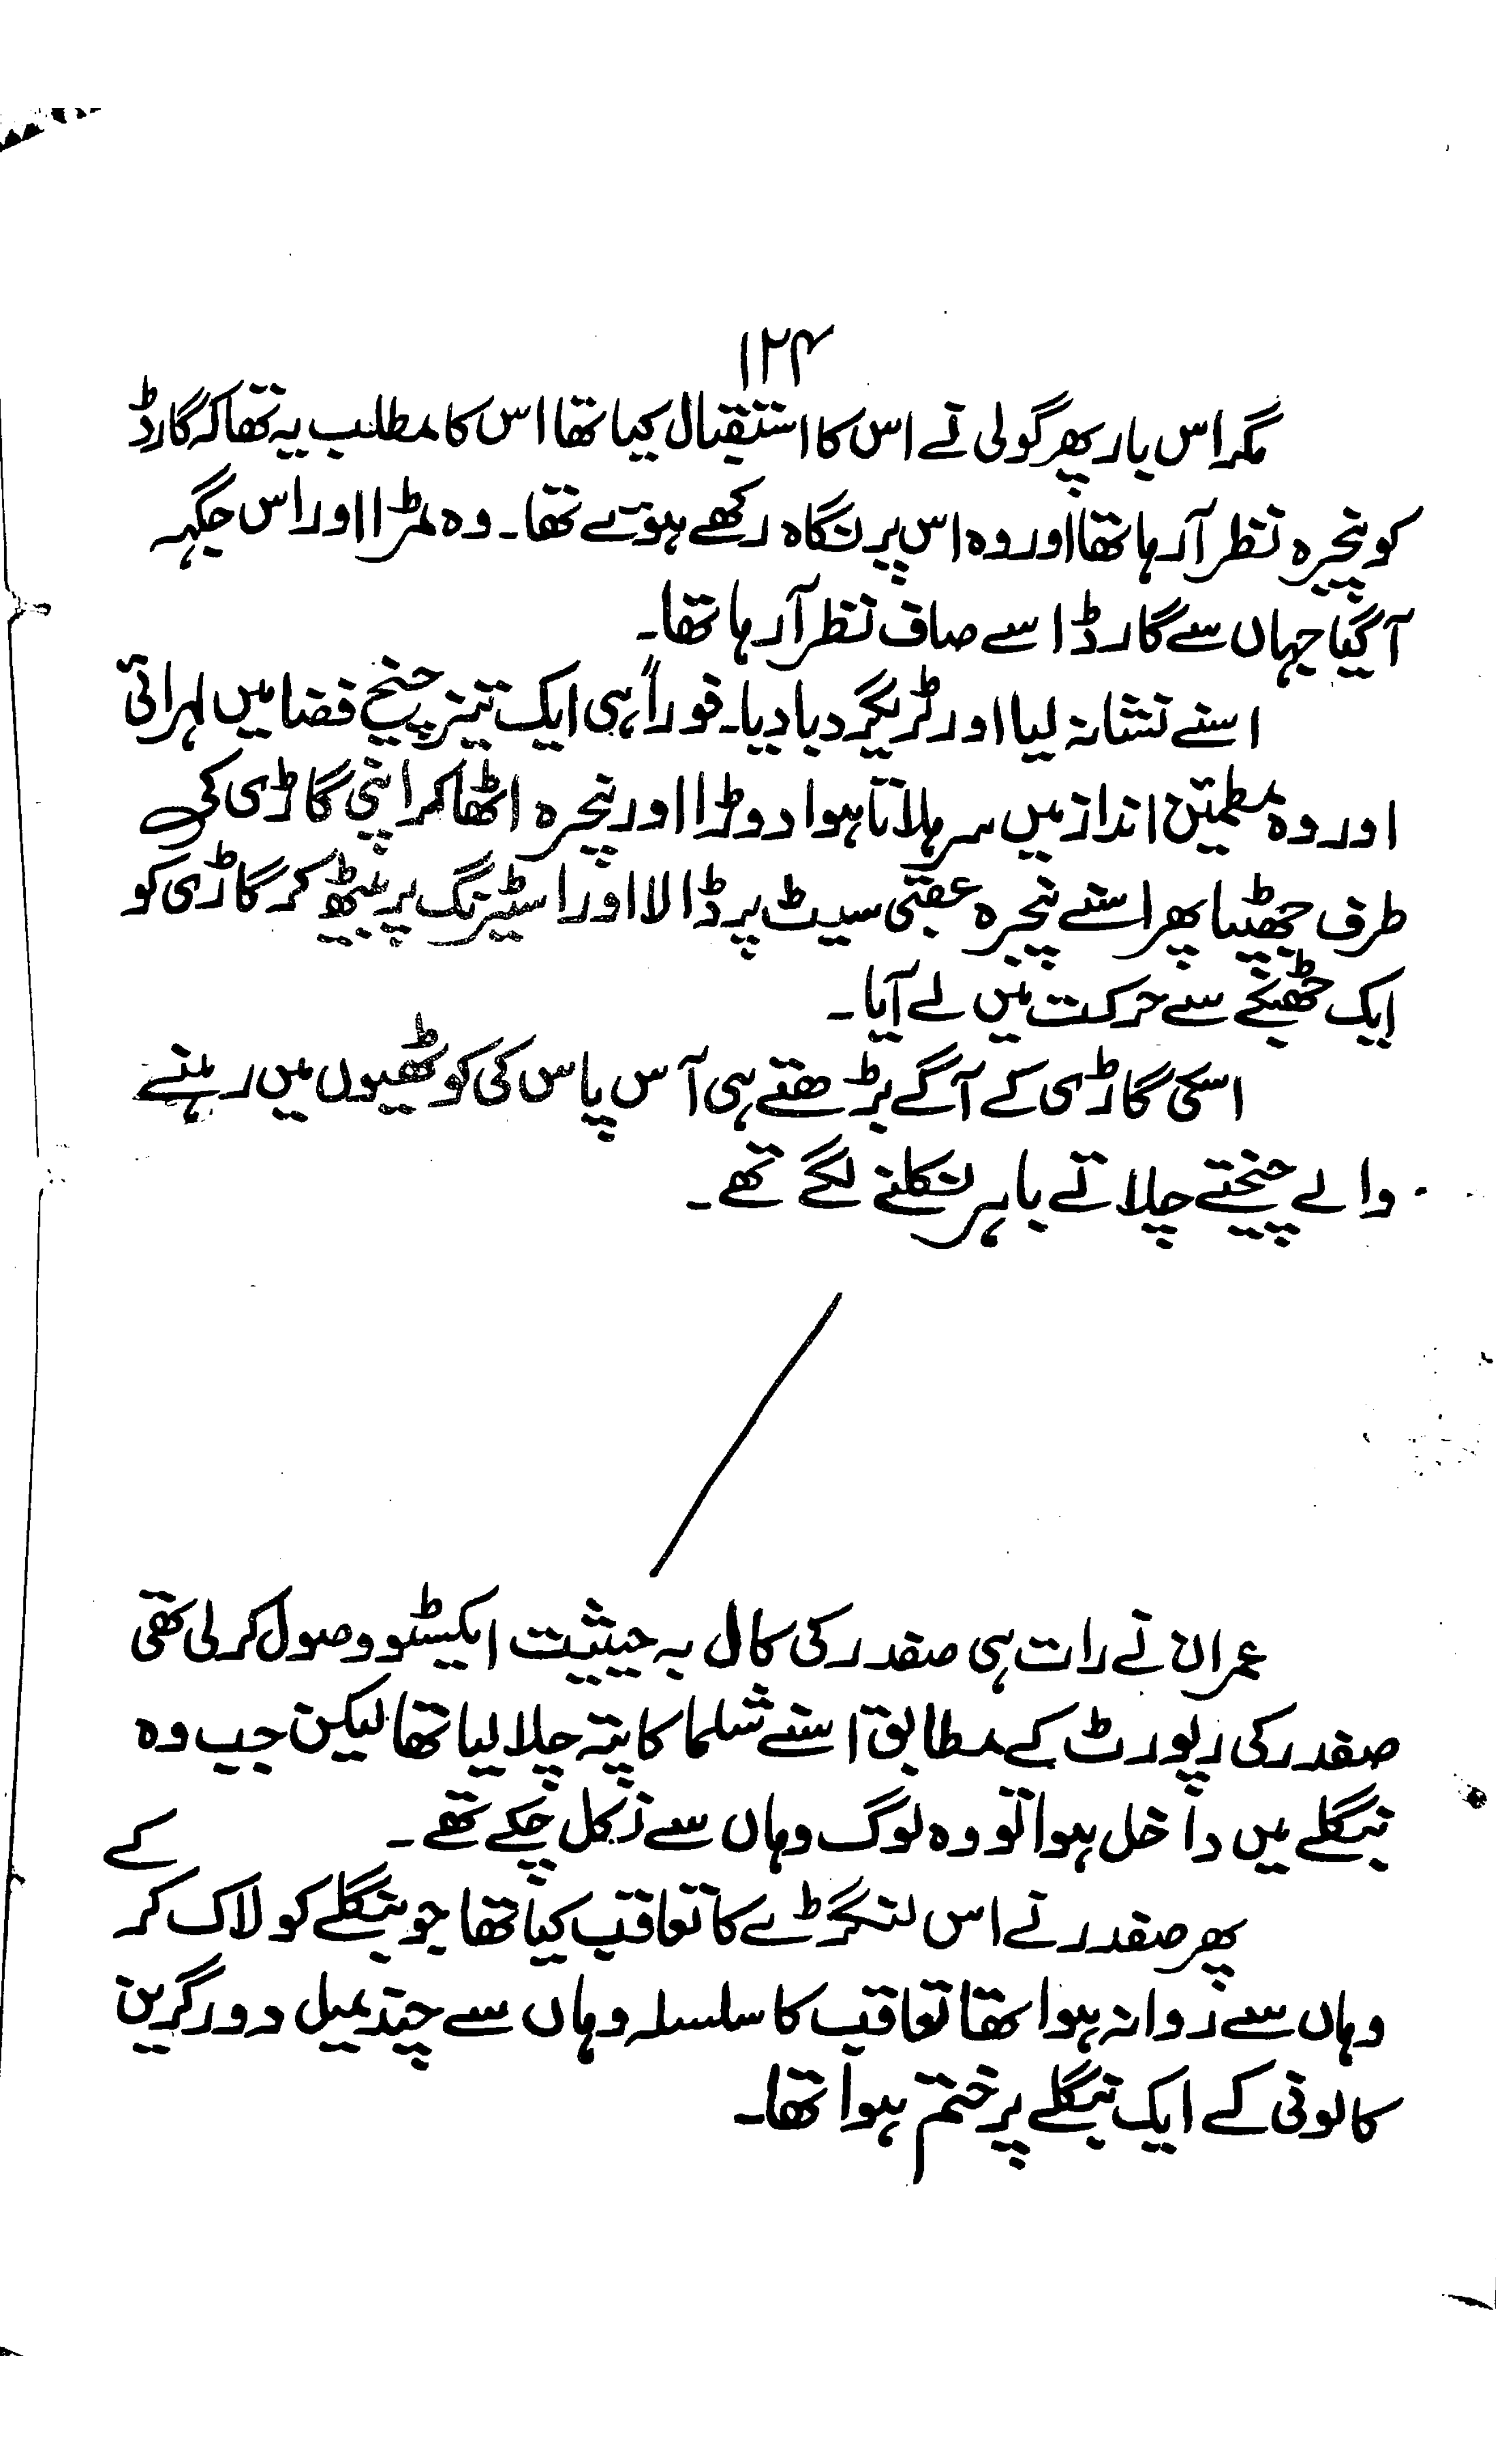 ۱۲۴
مگر اس بار پھر گولی نے اس کا استقبال کیا تھا اس کا مطلب یہ تھا کہ گارڈ
کو پنجرہ نظر آ رہا تھا اور وہ اس پر نگاہ رکھے ہوئے تھا۔ وہ مڑا اور اس جگہ
آ گیا جہاں سے گارڈ اسے صاف نظر آ رہا تھا۔
اسنے نشانہ لیا اور ٹریگر دبا دیا۔ فوراً ہی ایک تیز چیخ فضا میں لہرائی
اور وہ مطمئن انداز میں سر ہلاتا ہوا دوڑا اور پنجرہ اٹھا کر اپنی گاڑی کی
طرف جھپٹا پھر اسنے پنجرہ عقبی سیٹ پر ڈالا اور اسٹیرنگ پر بیٹھ کر گاڑی کو
ایک جھٹکے سے حرکت میں لے آیا۔
اسکی گاڑی کے آگے بڑھتے ہی آس پاس کی کوٹھیوں میں رہنے
والے چیختے چلاتے باہر نکلنے لگے تھے۔
عمران نے رات ہی صفدر کی کال بہ حیثیت ایکسٹو وصول کر لی تھی
صفدر کی رپورٹ کے مطابق اسنے شلما کا پتہ چلا لیا تھا لیکن جب وہ
بنگلے میں داخل ہوا تو وہ لوگ وہاں سے نکل چکے تھے۔
پھر صفدر نے اس لنگڑے کا تعاقب کیا تھا جو بنگلے کو لاک کر کے
وہاں سے روانہ ہوا تھا تعاقب کا سلسلہ وہاں سے چند میل دور گرین
کالونی کے ایک بنگلے پر ختم ہوا تھا۔